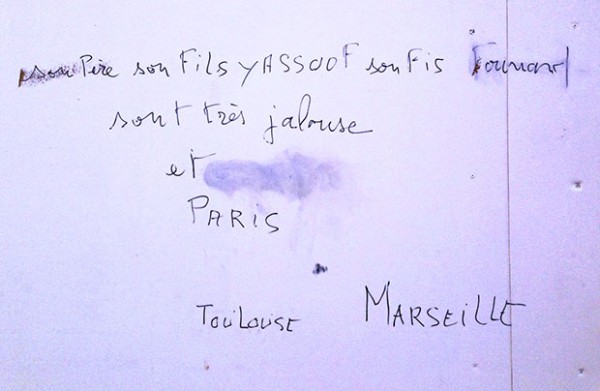 son Père son Fils YASSOOF son Fis
sont très jalouse
et
PARIS
TOULOUSE MARSEILLE